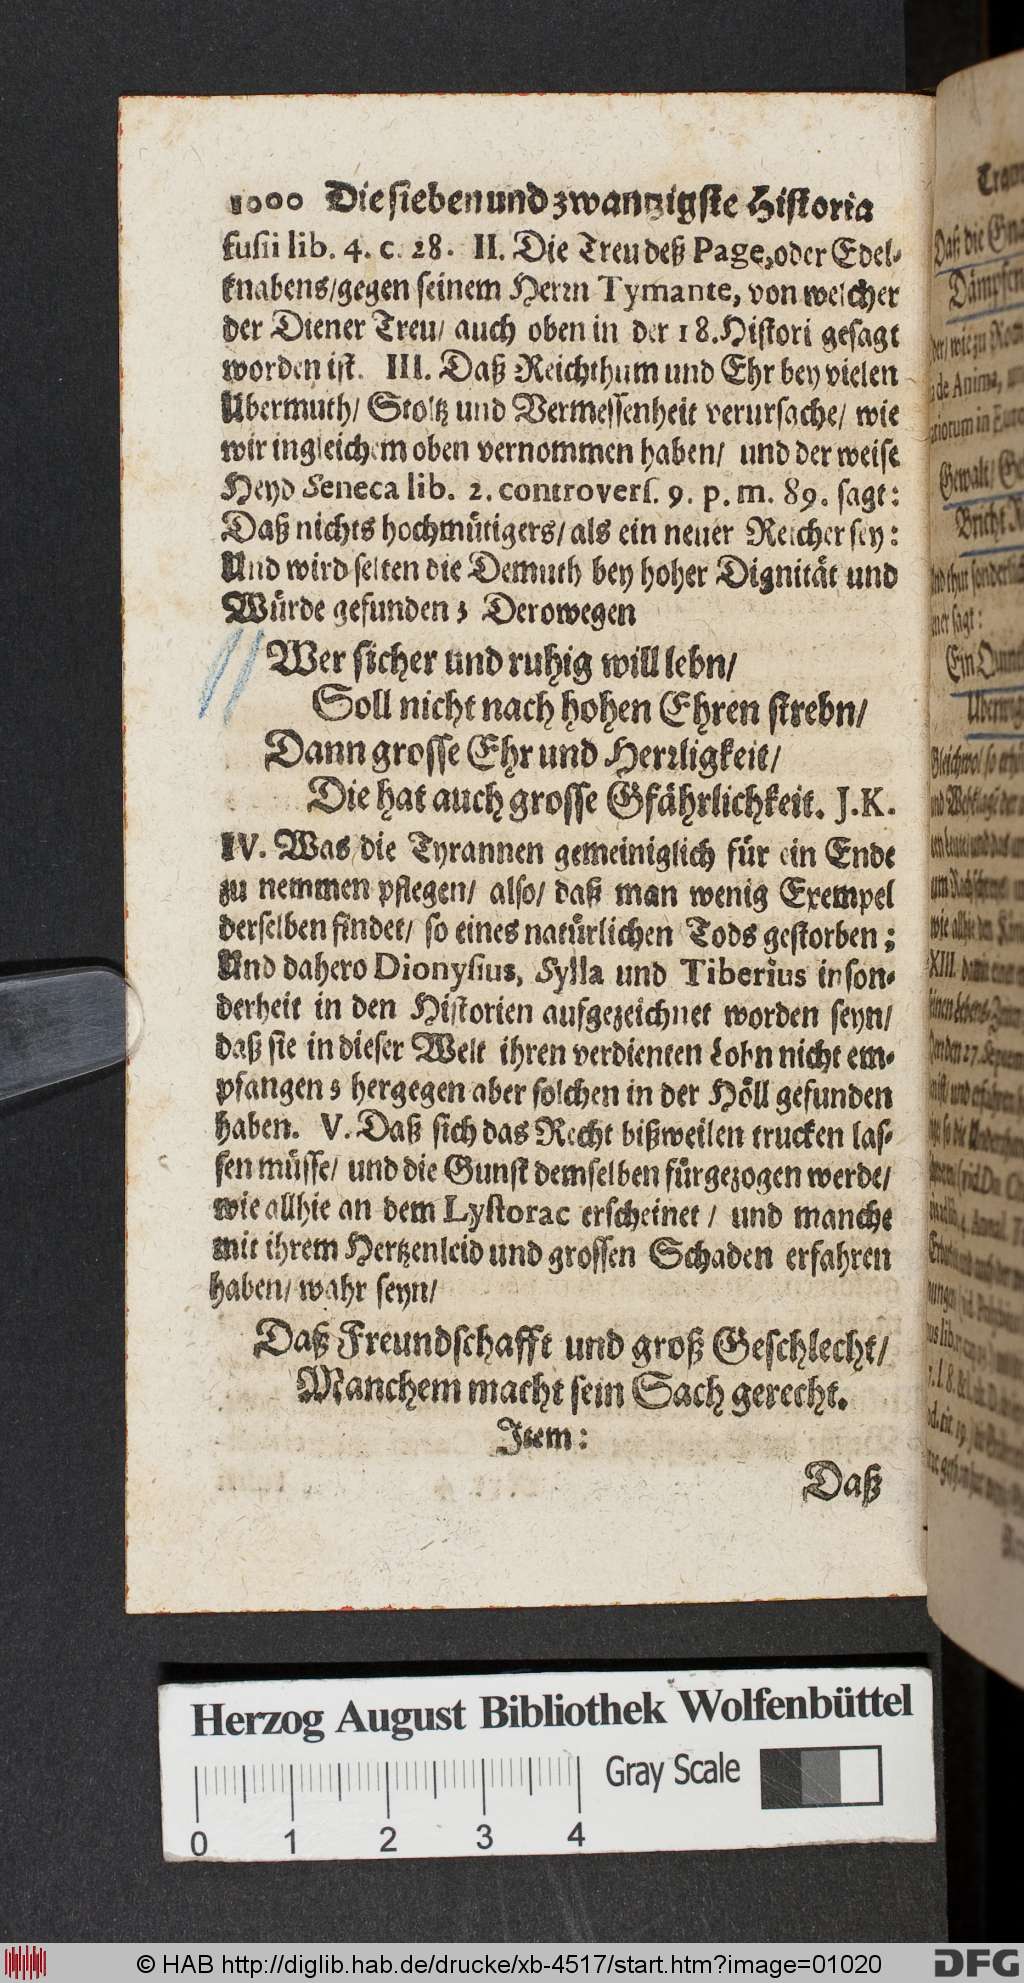 1000 Die sieben und zwantzigste Historia
kusii lib. 4. c. 28. II. Die Treu deß Page, oder Edel-
knabens/ gegen seinem Herrn Tymante, von welcher
der Diener Treu/ auch oben in der 18. Histori gesagt
worden ist. III. Daß Reichthum und Ehr bey vielen
Ubermuth/ Stoltz und Vermessenheit verursache/ wie
wir ingleichem oben vernommen haben/ und der weise
Heyd Seneca lib. 2. controvers. 9. p. m. 89. sagt:
Daß nichts hochmütigers/ als ein neuer Reicher sey:
Und wird selten die Demuth bey hoher Dignität und
Würde gefunden; Derowegen
Wer sicher und ruhig will lebn/
Soll nicht nach hohen Ehren strebn/
Dann grosse Ehr und Herrligkeit/
Die hat auch grosse Gfährlichkeit. J.K.
IV. Was die Tyrannen gemeiniglich für ein Ende
zu nemmen pflegen/ also/ daß man wenig Exempel
derselben findet/ so eines natürlichen Tods gestorben;
Und dahero Dionysius, Sylla und Tiberius inson-
derheit in den Historien aufgezeichnet worden seyn/
daß sie in dieser Welt ihren verdienten Lohn nicht em-
pfangen; hergegen aber solchen in der Höll gefunden
haben. V. Daß sich das Recht bißweilen trucken las-
sen müsse/ und die Gunst demselben fürgezogen werde/
wie allhie an dem Lystorac erscheinet/ und manche
mit ihrem Hertzenleid und grossen Schaden erfahren
haben/ wahr seyn/
Daß Freundschafft und groß Geschlecht/
Manchem macht sein Sach gerecht.
Item:
Daß
Herzog August Bibliothek Wolfenbüttel
Gray Scale
0 1 2 3 4
© HAB http://diglib.hab.de/drucke/xb-4517/start.htm?image=01020
DFG